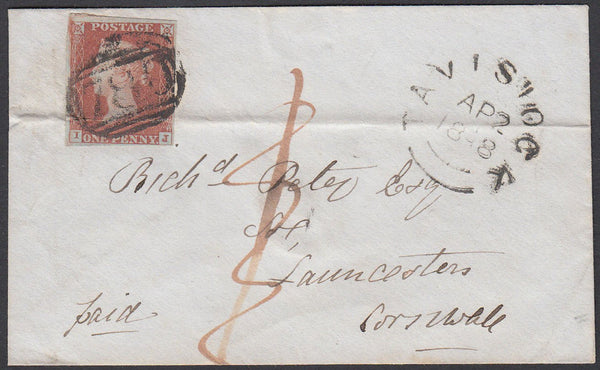 POSTAGE
ONE PENNY
I J
TAVISTOCK
AP 2
1848
Richd Peter Esq
Launcesters
Cornwall
paid